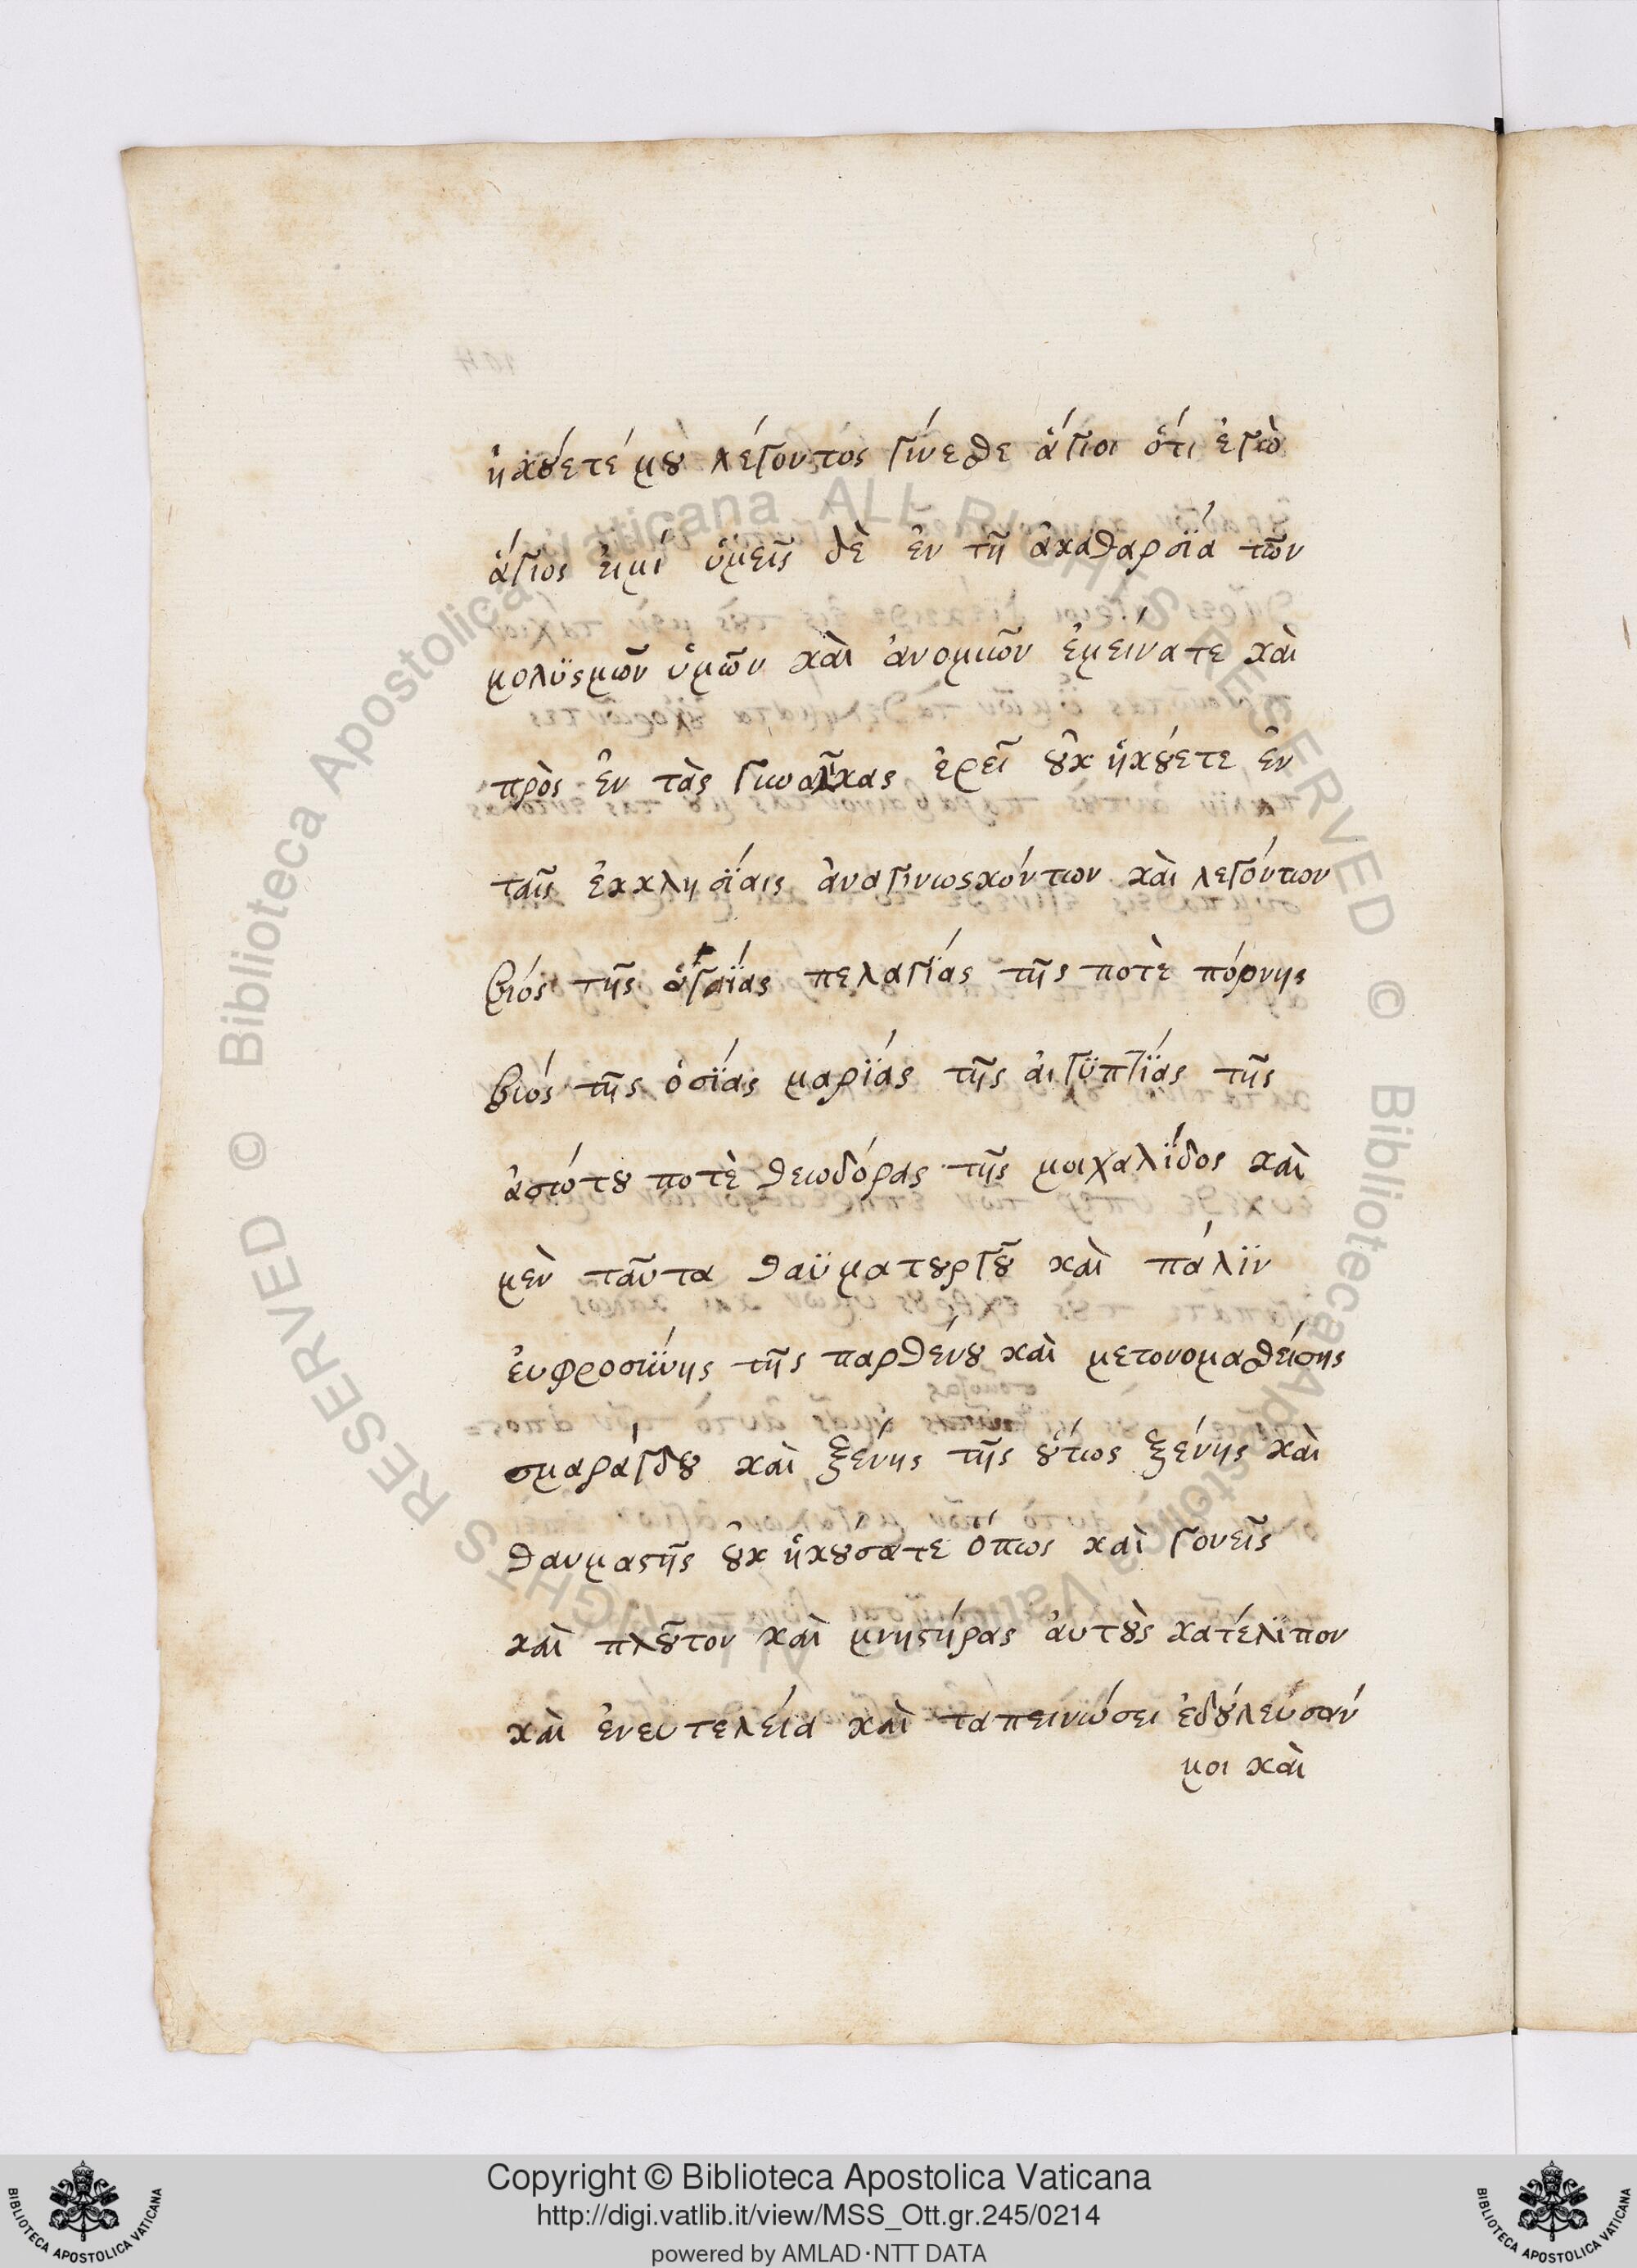 ἠκούετέ μου λέγοντος γίνεσθε ἅγιοι ὅτι ἐγὼ
ἅγιος εἰμί ὑμεῖς δὲ ἐν τῇ ἀκαθαρσΐα τῶν
μολϋσμῶν ὑμῶν καὶ ἀνομιῶν ἐμείνατε καὶ
πρὸς ἐν τὰς γυναῖκας ἐρεῖ οὐκ ἠκούετε ἐν
ταῖς ἐκκλησΐαις ἀναγινωσκόντων καὶ λεγόντων
βιός τῆς ἁγΐας πελαγΐας τῆς ποτὲ πόρνης
βιός τῆς ὁσΐας μαρΐας τῆς αἰγϋπτΐας τῆς
ἀσώτου ποτὲ θεωδόρας τῆς μοιχαλΐδος καὶ
μὲν ταῦτα θαϋματουργοῦ καὶ πάλϊν
ἐυφροσύνης τῆς παρθένου καὶ μετονομασθείσης
σμαράγδου καὶ ξένης τῆς οὕτως ξένης καὶ
θαυμαστῆς οὐκ ἠκούσατε ὅπως καὶ γονεῖς
καὶ πλοῦτον καὶ μνηστήρας ἀυτοὺς κατέλϊπον
καὶ ἐνευτελεία καὶ ταπεινώσει ἐδούλευσάν
μοι καὶ
Copyright © Biblioteca Apostolica Vaticana
http://digi.vatlib.it/view/MSS_Ott.gr.245/0214
powered by AMLAD·NTT DATA
BIBLIOTECA APOSTOLICA VATICANA
BIBLIOTECA APOSTOLICA VATICANA